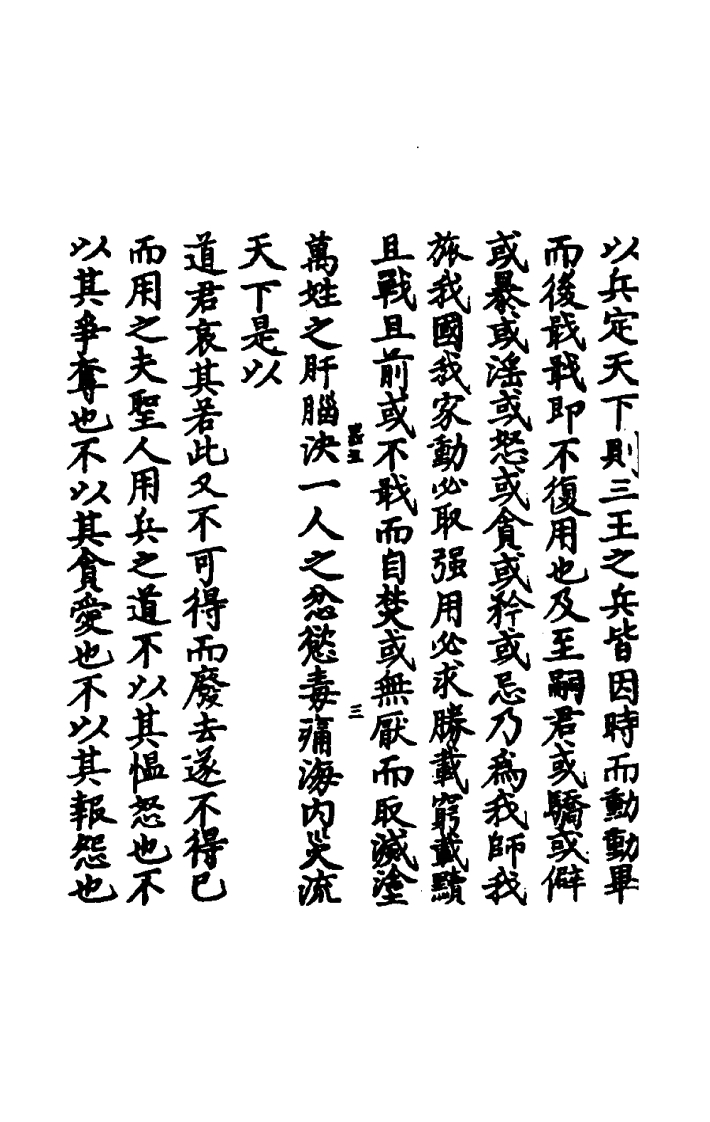 以兵定天下則三王之兵皆因時而動動畢
而後戢戢即不復用也及至嗣君或驕或僻
或暴或滛或怒或貪或矜或忌乃爲我師我
旅我國我家動必取强用必求勝載窮載黷
且戰且前或不戢而自焚或無厭而取滅塗
三
萬姓之肝腦決一人之忿慾毒痛海内災流
天下是以
道君哀其若此又不可得而廢去遂不得已
而用之夫聖人用兵之道不以其愠怒也不
以其爭奪也不以其貪愛也不以其報怨也